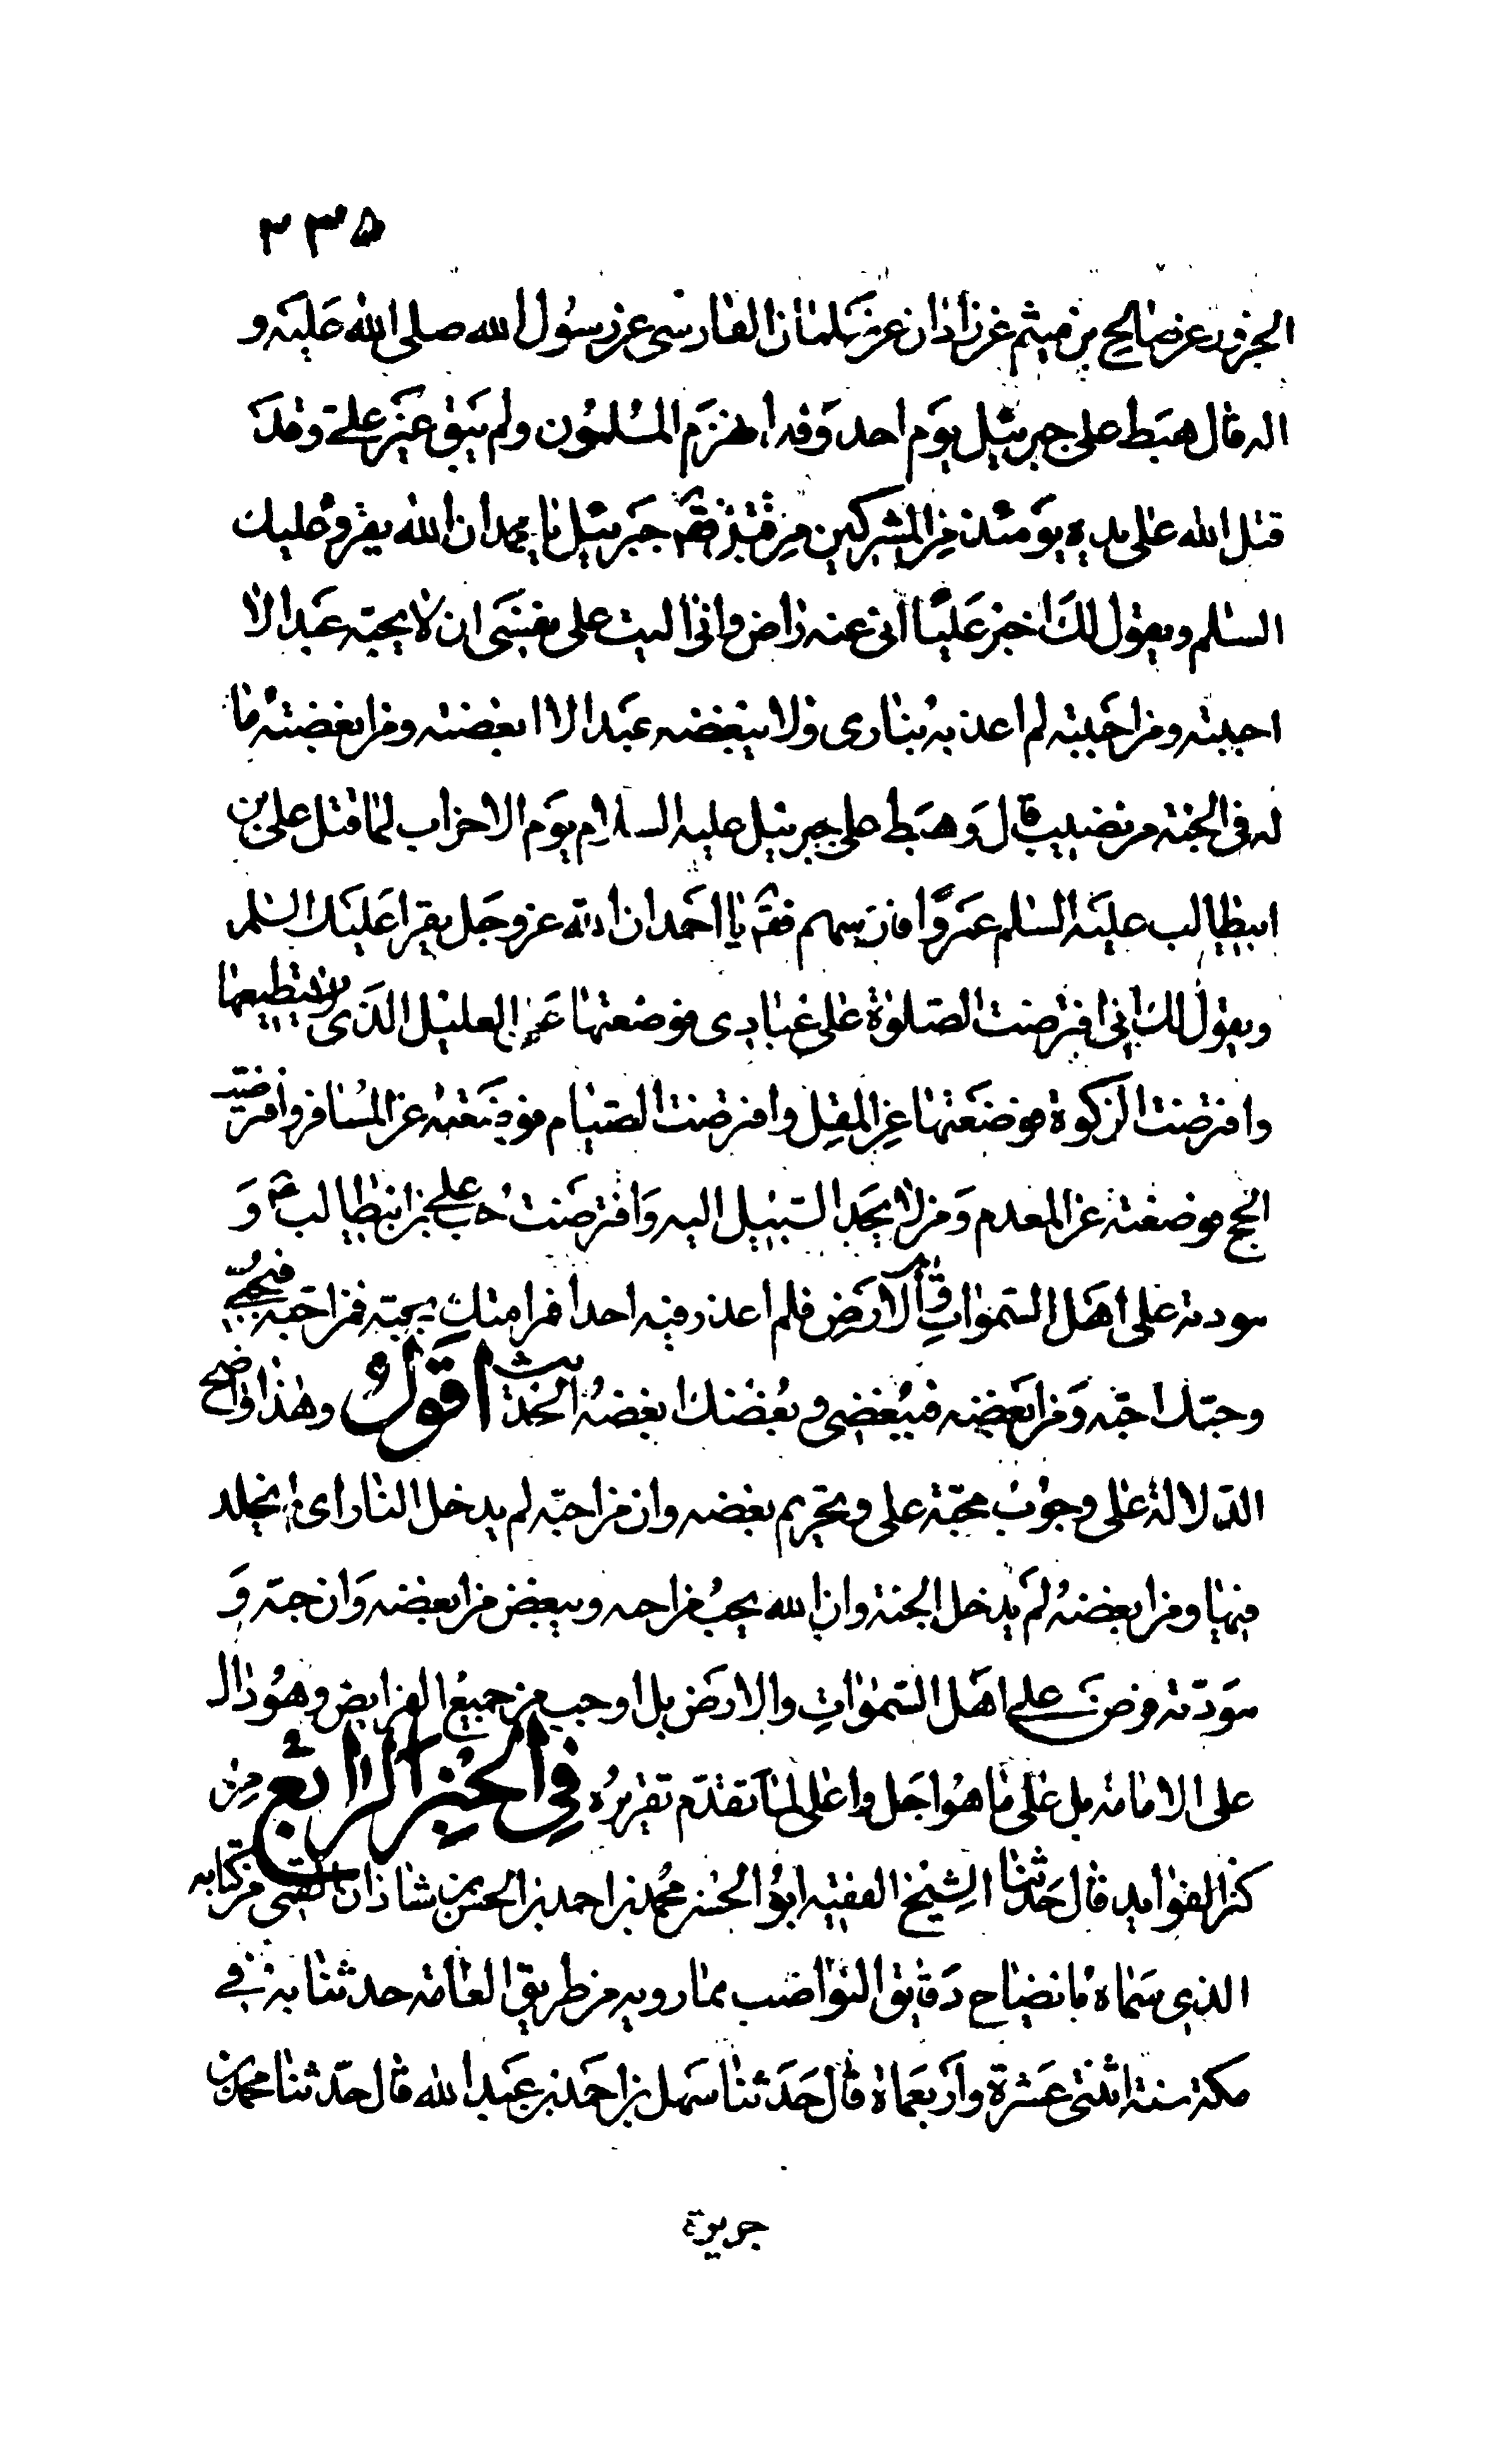 ٢٣٥
الجزور عن صالح بن ميثم عن زاذان عن سلمان الفارسى عن رسول الله صلى الله عليه و
اله قال هبط على جبرئيل يوم احد وقد انهزم المسلمون ولم يبق غير على وقد
قتل الله على يديه يومئذ من المشركين من قتل فقم جبرئيل يا محمد ان الله يقرؤ عليك
السلم ويقول لك اخبر عليا انى عنه راض وانى اليت على نفسى ان لا يحبه عبد الا
احببته ومن احببته لم اعذبه بنارى ولا يبغضه عبد الا ابغضته ومن ابغضته ما
له فى الجنة من نصيب قال وهبط على جبرئيل عليه السلام يوم الاحزاب لما قتل على بن
ابيطالب عليه السلم عمروا فارسهم فقم يا احمد ان الله عز وجل يقرا عليك السلم
ويقول لك انى افترضت الصلوة على عبادى فوضعتها عن العليل الذى لا يستطيعها
وافترضت الزكوة فوضعتها عن المقل وافترضت الصيام فوضعته عن المسافر وافترضت
الحج فوضعته عن المعدم ومن لا يجد السبيل اليه وافترضت حب على بن ابيطالب ع و
مودته على اهل السموات والارض فلم اعذر فيه احدا فمر امتك بحبه فمن احبه فبحبى
وحبك احبه ومن ابغضه فببغضى وبغضك ابغضه الحديث اقول وهذا واضح
الدلالة على وجوب محبة على وتحريم بغضه وان من احبه لم يدخل النار اى لم يخلد
فيها ومن ابغضه لم يدخل الجنة وان الله يحب من احبه ويبغض من ابغضه وان حبه و
مودته فرض على اهل السموات والارض بل اوجب من جميع الفرايض وهو دال
على الامامة بل على ما هو اجل واعلى لما تقدم تقريره فى الخبر الرابع من
كنز الفوايد قال حدثنا الشيخ الفقيه ابو الحسن محمد بن احمد بن الحسن بن شاذان القمى من كتابه
الذى سماه بايضاح دقايق النواصب مما رويه من طريق العامة حدثنا به فى
مكة سنة اثنتى عشرة واربعماة قال حدثنا سهل بن احمد بن عبد الله قال حدثنا محمد بن
جريرة